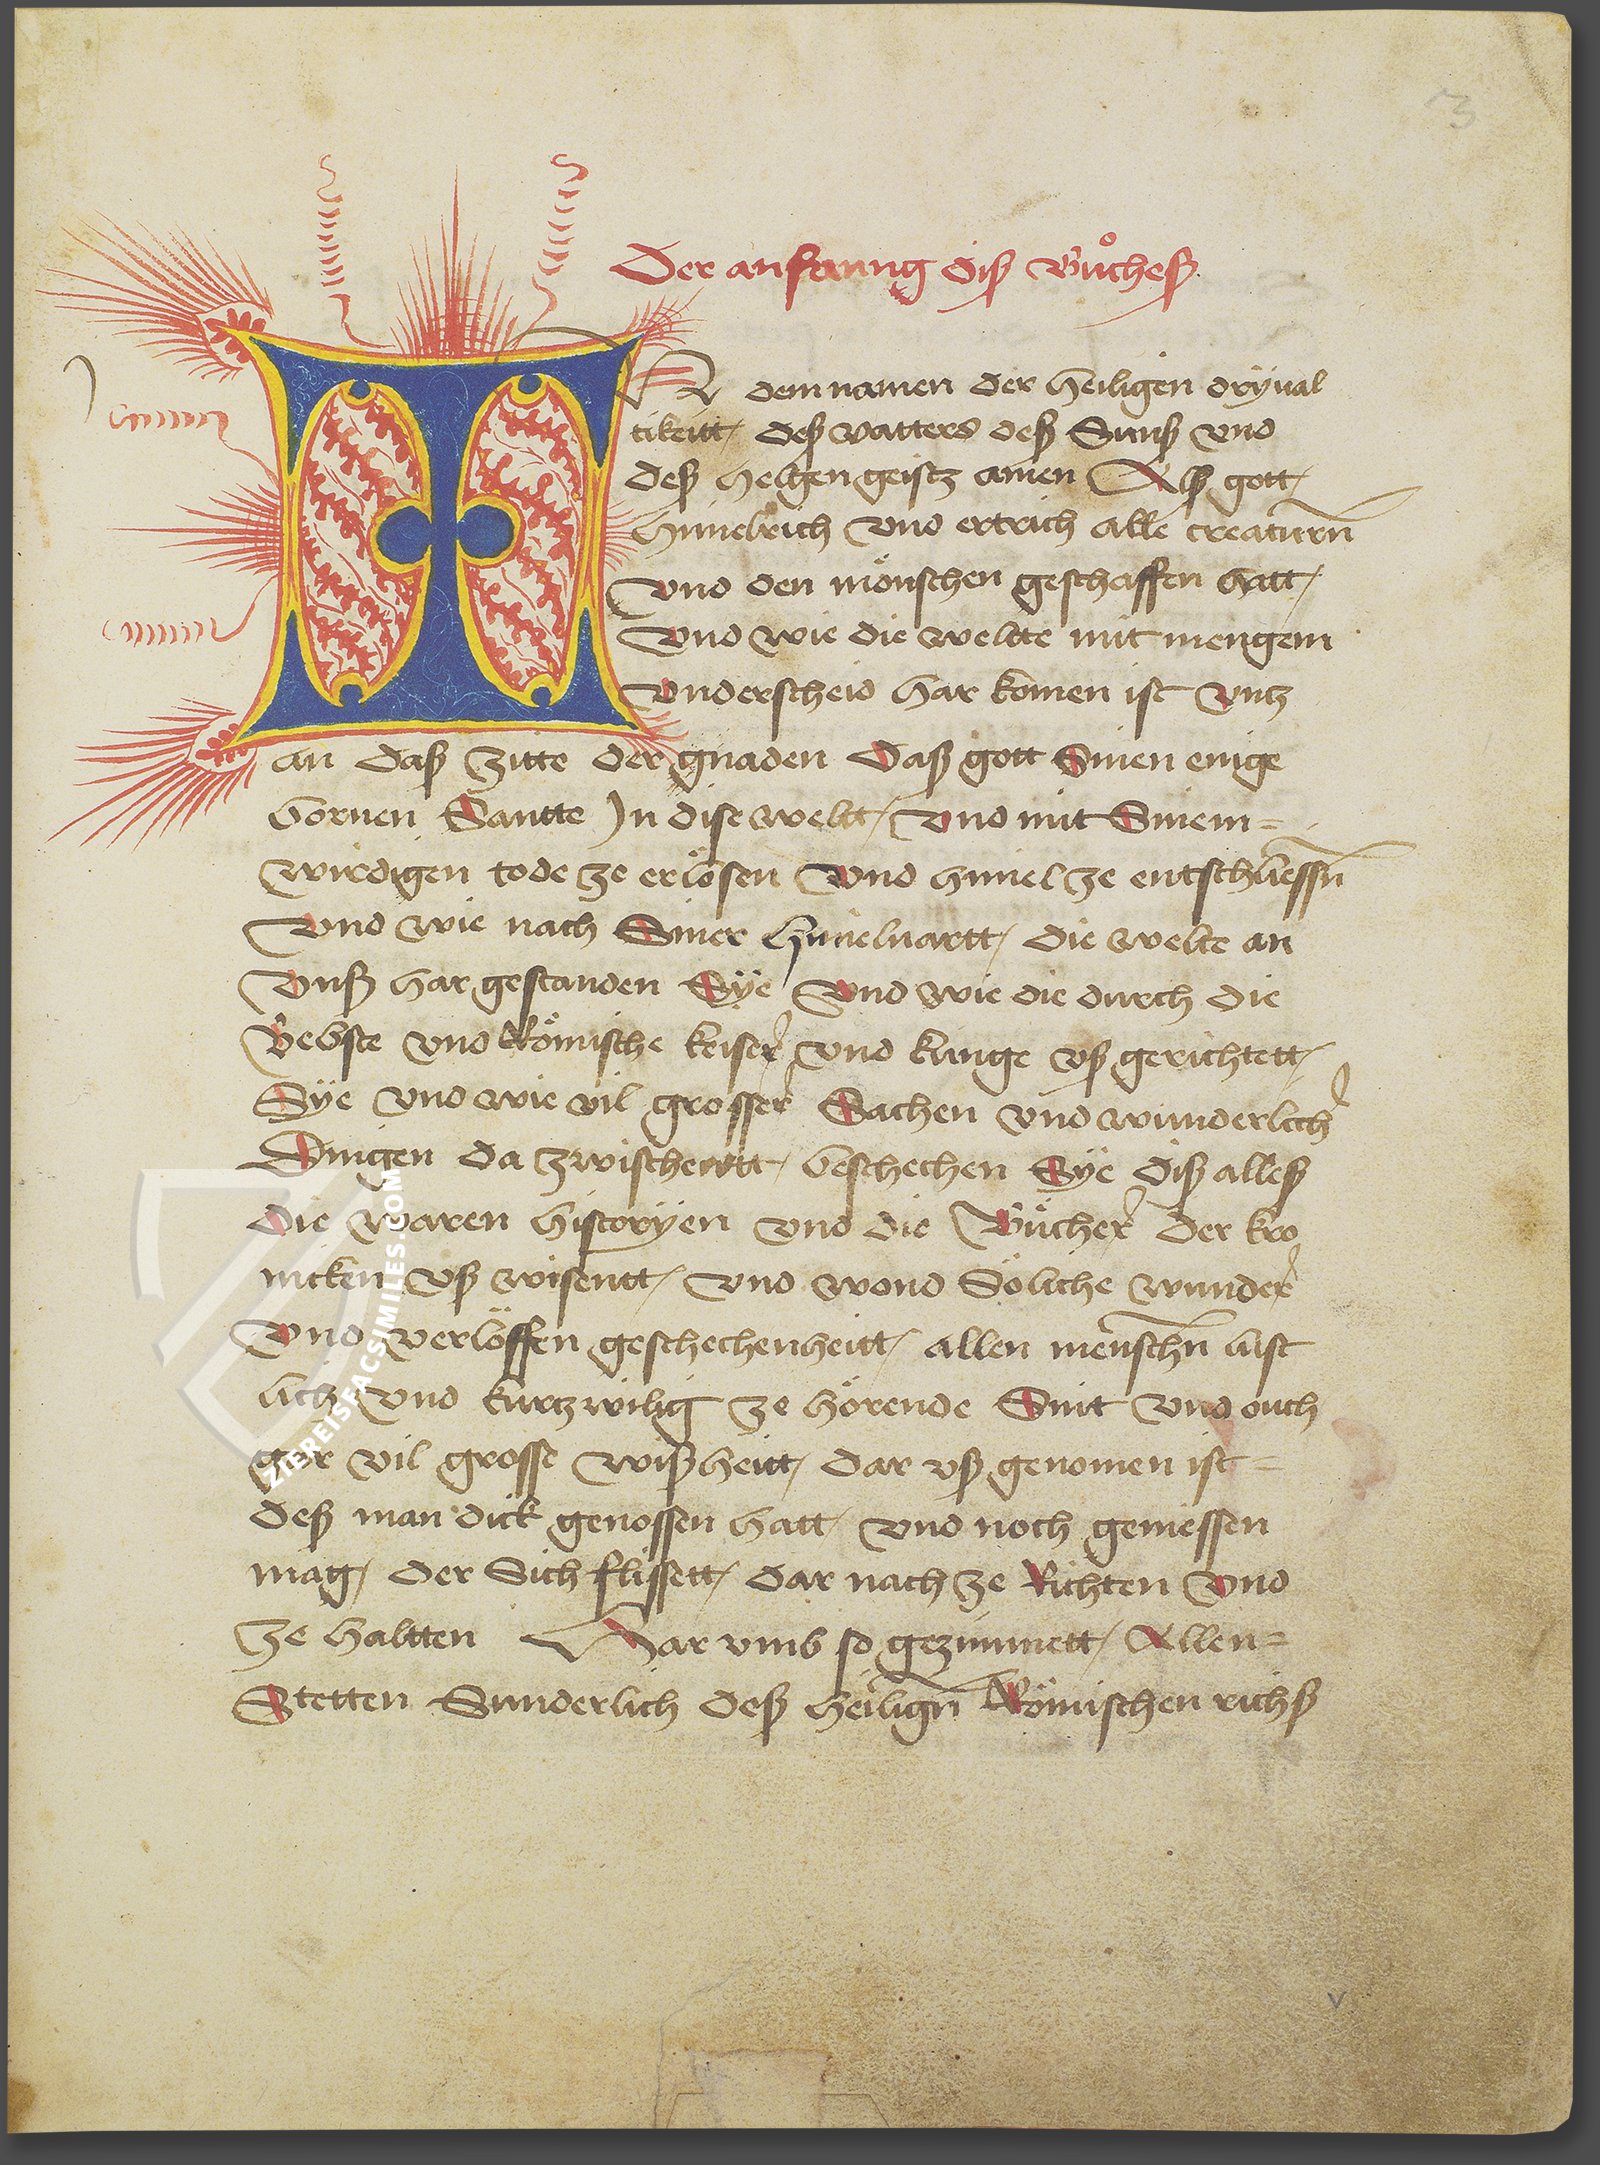 3
Der anfanng diß Bůcheß
IN dem namen der heiligen dryual
tikeitt / deß vatters deß Sunß vnd
deß helgen geistz amen Alß gott /
himelrich vnd ertrich alle creaturn̄
vnd den mönschen geschaffen hatt /
Vnd wie die weltte mit mengem
vnderscheid har komen ist vntz
an daß zitte der gnaden Daß gott Sinen einge
bornen Santte In dise weltt / vnd mit Sinem =
wirdigen tode ze erlösen vnd himel ze entschliessn̄
Vnd wie nach Siner himeluartt / die welte an
vnß har gestanden Sÿe / vnd wie die durch die
Bebste vnd Römische keiser vnd künge vß gerichtett /
Sÿe vnd wie vil grosser Sachen vnd wunderlicher
Dingen da zwischentt / beschechen Sÿe diß alleß
die waren historÿen vnd die Bücher der kro
nicken vß wisentt / vnd wond Söliche wunder
Vnd verlöffen geschechenheitt / allen menschn̄ lust
lich vnd kurtzwilig ze hörende Sint vnd ouch
gar vil grosse wißheitt / dar vß genomen ist =
deß man dick genossen hatt / vnd noch geniessen
mag / der Sich flissett / dar nach ze Richten vnd
ze haltten Har vmb so gezimmett / Allen =
Stetten Sunderlich deß heilign̄ Römischen richß
ZIEREISFACSIMILES.COM
v